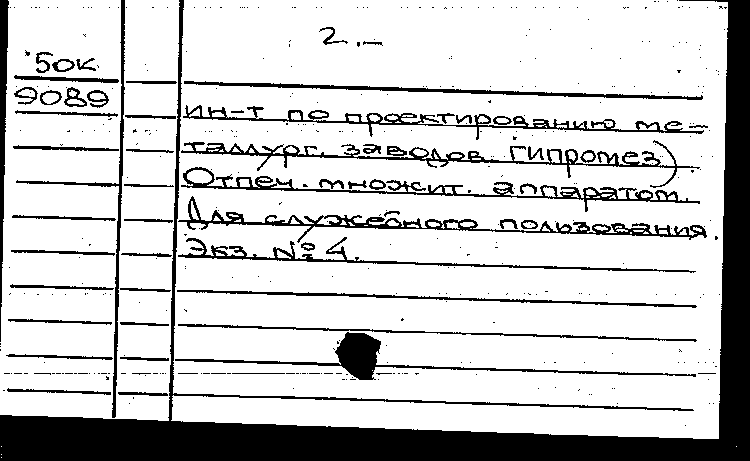 2.—
50к
9089
ин-т по проектированию ме-
таллург. заводов. Гипромез)
Отпеч. множит. аппаратом.
Для служебного пользования.
Экз. № 4.